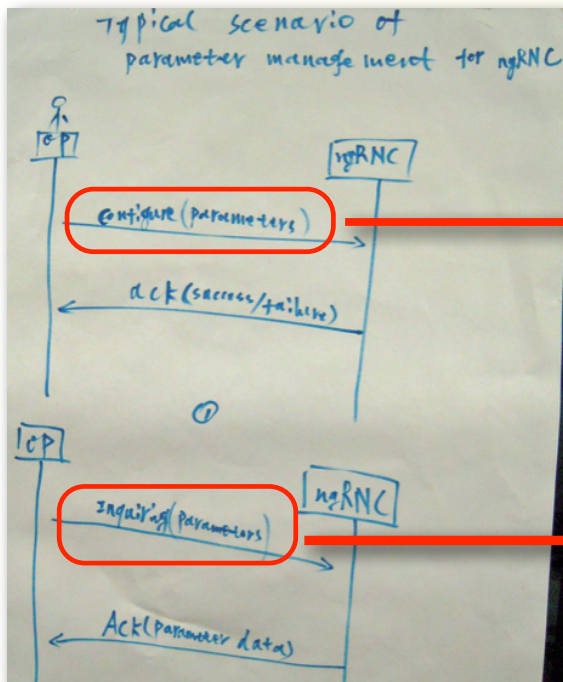 Typical scenario of
parameter management for ngRNC
OP
ngRNC
configure(parameters)
ack(success/failure)
①
OP
ngRNC
Inquiring(parameters)
Ack(parameter data)